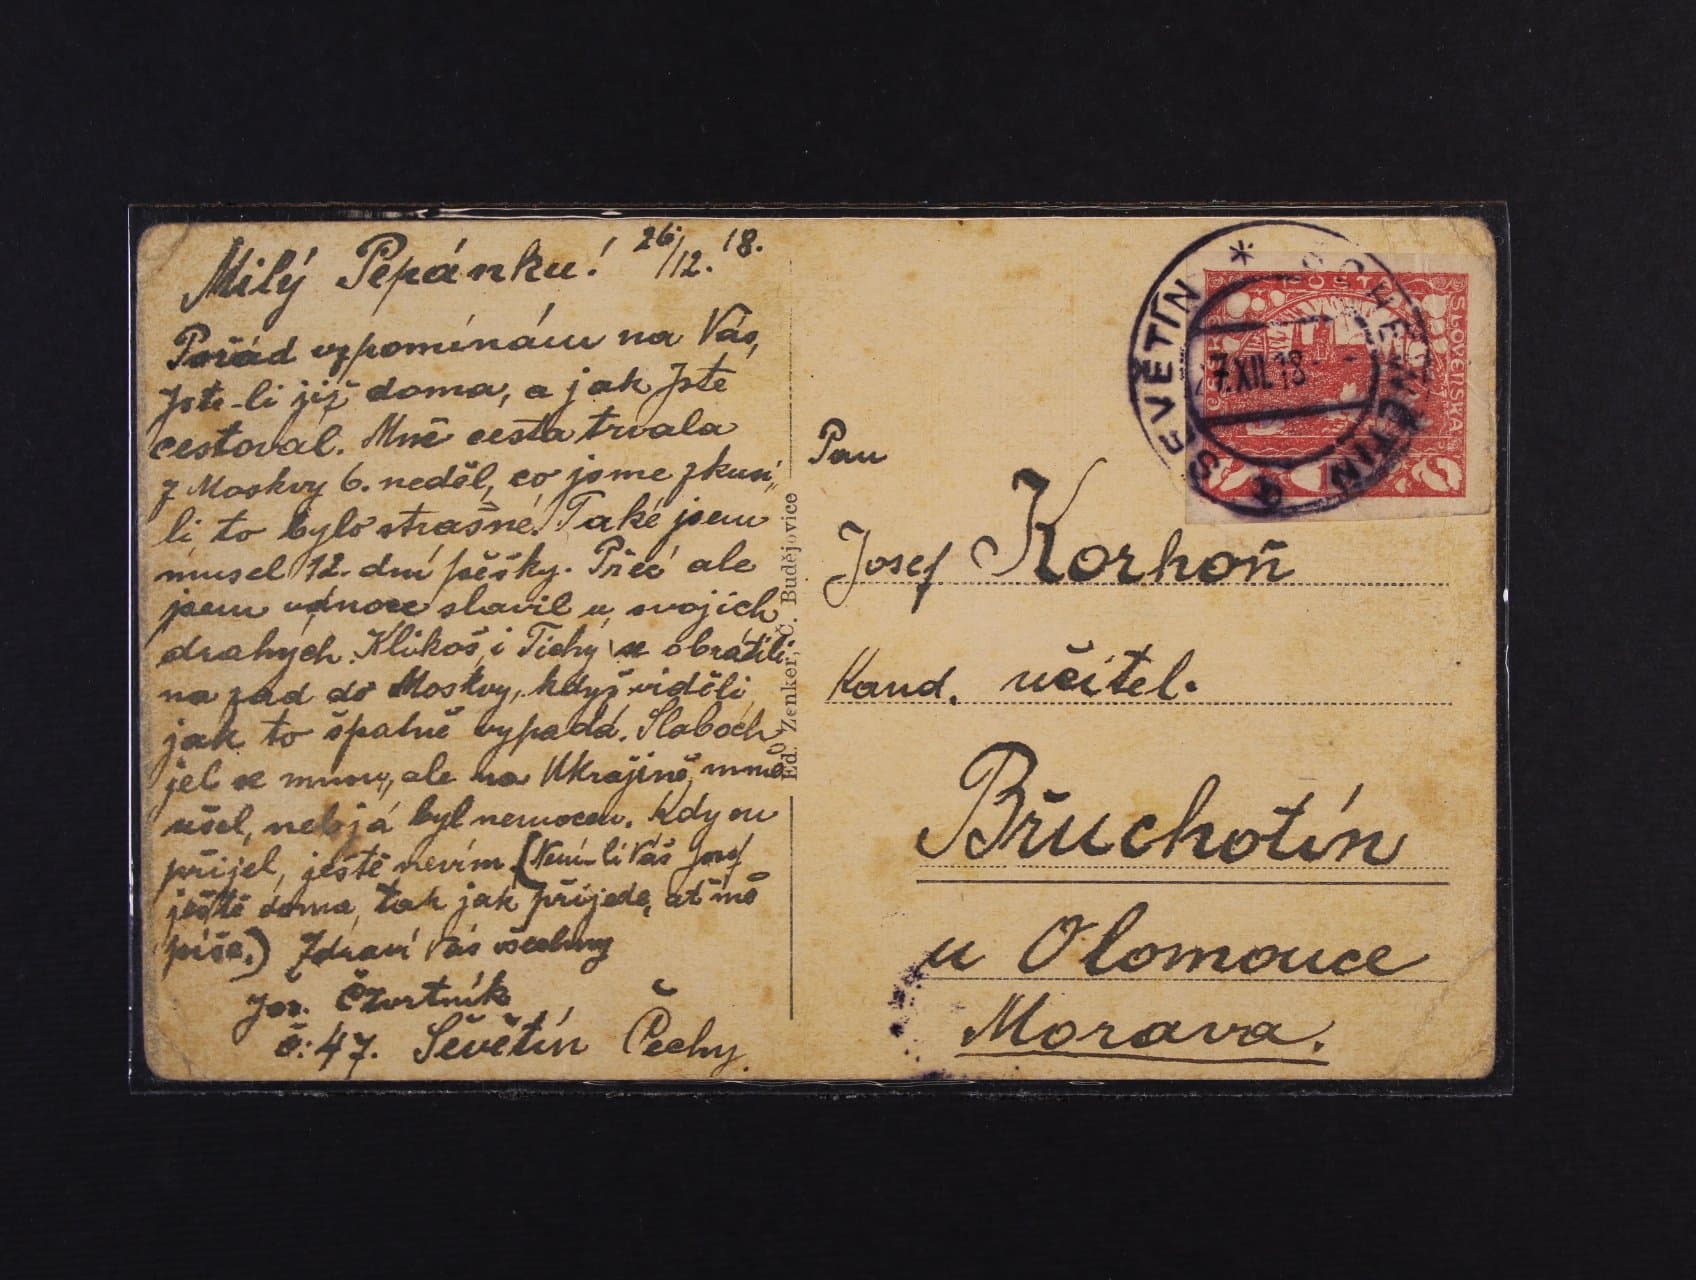 Milý Pepánku! 26/12. 18.
Pořád vzpomínám na Vás,
jste-li již doma, a jak jste
cestoval. Mně cesta trvala
z Moskvy 6. neděl, co jsme zkusi„
li to bylo strašné! Také jsem
musel 12. dní pěšky. Přec ale
jsem vánoce slavil u svojich
drahých. Klikoš i Tichy se obrátili
na zad do Moskvy, když viděli
jak to špatně vypadá. Slaboch
jel se mnou, ale na Ukrajině mně
ušel, neb já byl nemocen. Kdy on
přijel, ještě nevím (Není-li Váš Josef
ještě doma, tak jak přijede, ať mě
píše.) Zdraví Vás všechny
Jos. Čtvrtník
č: 47. Ševětín Čechy.
Ed. Zenker, Č. Budějovice
SEVĚTÍN
27.XII.18
SLOVENSKÁ
Pan
Josef Korhoň
Kand. učitel.
Břuchotín
u Olomouce
Morava.